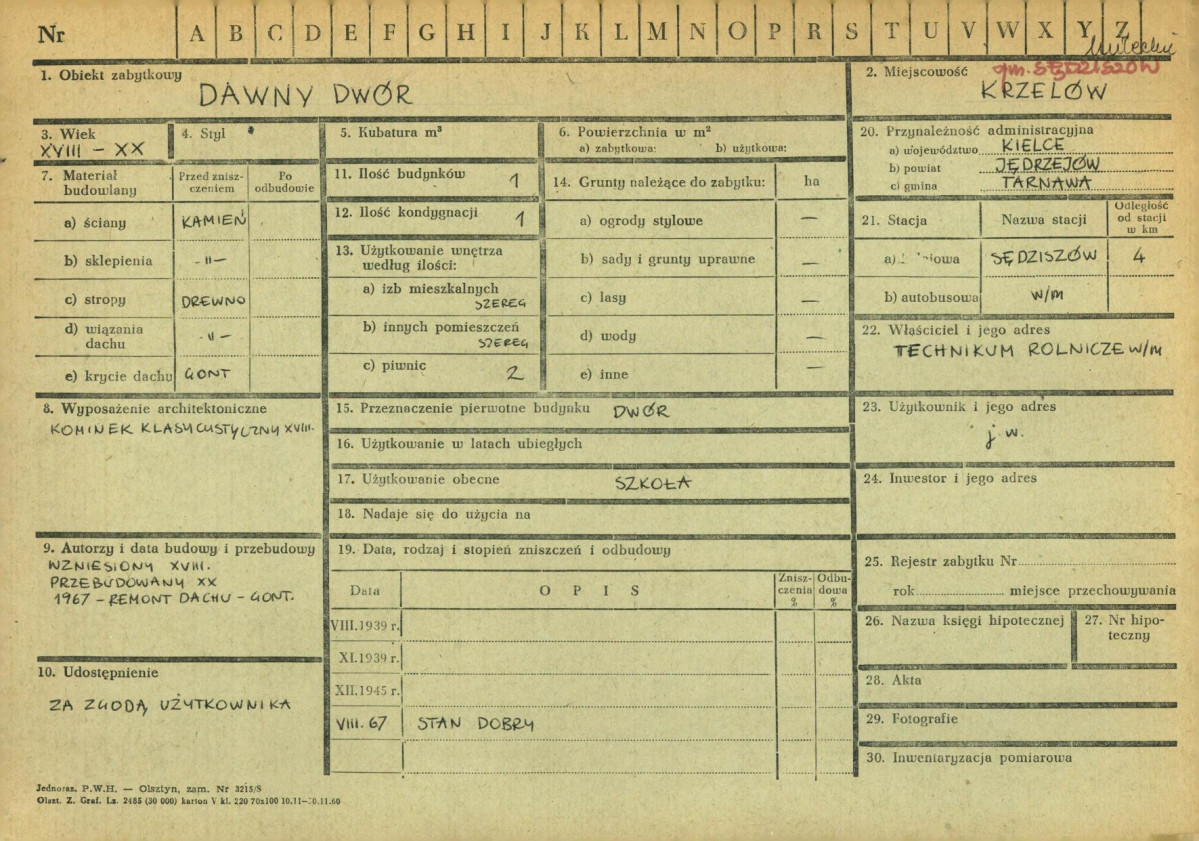 Nr A B C D E F G H I J K L M N O P R S T U V W X Y Z
gm. SĘDZISZÓW
1. Obiekt zabytkowy
DAWNY DWÓR
2. Miejscowość
KRZELÓW
3. Wiek
XVIII – XX
4. Styl
5. Kubatura m³
6. Powierzchnia w m²
a) zabytkowa: b) użytkowa:
20. Przynależność administracyjna
a) województwo KIELCE
b) powiat JĘDRZEJÓW
c) gmina TARNAWA
7. Materiał budowlany
Przed znisz-
czeniem
Po
odbudowie
a) ściany KAMIEŃ
b) sklepienia -"-
c) stropy DREWNO
d) wiązania
dachu -"-
e) krycie dachu GONT
11. Ilość budynków 1
12. Ilość kondygnacji 1
13. Użytkowanie wnętrza
według ilości:
a) izb mieszkalnych
SZEREG
b) innych pomieszczeń
SZEREG
c) piwnic 2
14. Grunty należące do zabytku: ha
a) ogrody stylowe —
b) sady i grunty uprawne —
c) lasy —
d) wody —
e) inne —
21. Stacja Nazwa stacji
Odległość
od stacji
w km
a) SĘDZISZÓW 4
b) autobusowa W/M
22. Właściciel i jego adres
TECHNIKUM ROLNICZE W/M
8. Wyposażenie architektoniczne
KOMINEK KLASYCUSTYCZNY XVIII.
15. Przeznaczenie pierwotne budynku DWÓR
16. Użytkowanie w latach ubiegłych
17. Użytkowanie obecne SZKOŁA
18. Nadaje się do użycia na
23. Użytkownik i jego adres
j.w.
24. Inwestor i jego adres
9. Autorzy i data budowy i przebudowy
WZNIESIONY XVIII.
PRZEBUDOWANY XX
1967 – REMONT DACHU – GONT.
19. Data, rodzaj i stopień zniszczeń i odbudowy
Data O P I S
Znisz-
czenia
%
Odbu-
dowa
%
VIII.1939 r.
XI.1939 r.
XII.1945 r.
VIII.67 STAN DOBRY
25. Rejestr zabytku Nr
rok miejsce przechowywania
26. Nazwa księgi hipotecznej
27. Nr hipo-
teczny
28. Akta
29. Fotografie
30. Inwentaryzacja pomiarowa
10. Udostępnienie
ZA ZGODĄ UŻYTKOWNIKA
Jednoraz. P.W.H. — Olsztyn, zam. Nr 3215/S
Olszt. Z. Graf. Lz. 2485 (30 000) karton V kl. 220 70x100 10.11—10.11.60